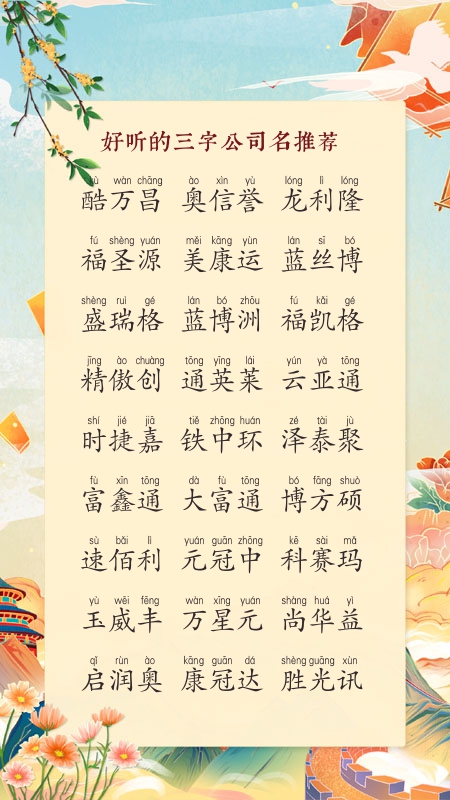 好听的三字公司名推荐
kù wàn chāng ào xìn yù lóng lì lóng
酷万昌 奥信誉 龙利隆
fú shèng yuán měi kāng yùn lán sī bó
福圣源 美康运 蓝丝博
shèng ruì gé lán bó zhōu fú kǎi gé
盛瑞格 蓝博洲 福凯格
jīng ào chuàng tōng yīng lái yún yà tōng
精傲创 通英莱 云亚通
shí jié jiā tiě zhōng huán zé tài jù
时捷嘉 铁中环 泽泰聚
fù xīn tōng dà fù tōng bó fāng shuò
富鑫通 大富通 博方硕
sù bǎi lì yuán guān zhōng kē sài mǎ
速佰利 元冠中 科赛玛
yù wēi fēng wàn xīng yuán shàng huá yì
玉威丰 万星元 尚华益
qǐ rùn ào kāng guān dá shèng guāng xùn
启润奥 康冠达 胜光讯